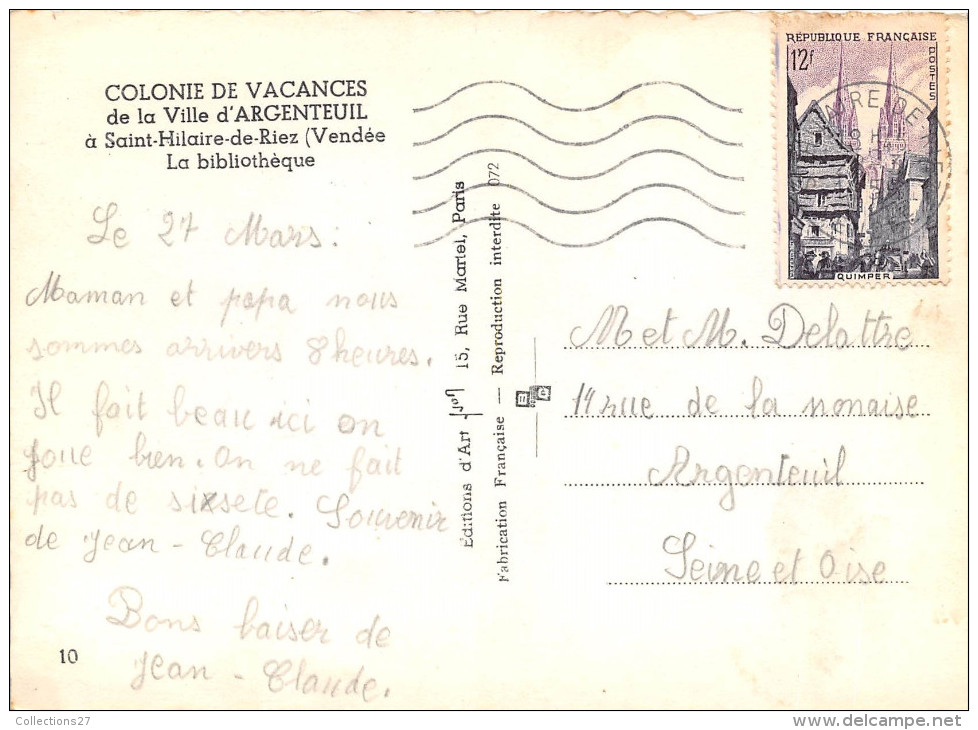 COLONIE DE VACANCES
de la Ville d'ARGENTEUIL
à Saint-Hilaire-de-Riez (Vendée
La bibliothèque
Le 27 Mars :
Maman et papa nous
sommes arrivers 8 heures.
Il fait beau ici on
joue bien. On ne fait
pas de sixsete. Souvenir
de Jean - Claude.
Bons baiser de
Jean - Claude.
10
Editions d'Art Jon 15, Rue Martel, Paris
Fabrication Française — Reproduction interdite 072
RÉPUBLIQUE FRANÇAISE
12f
POSTES
QUIMPER
M et M. Delattre
14 rue de la nonaise
Argenteuil
Seine et Oise
Collections27
www.delcampe.net